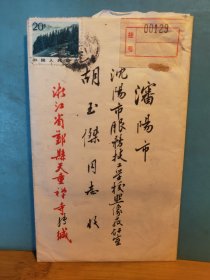 20分
中国人民邮政
挂号
00129
瀋陽市
沈阳市服務技工学校
胡玉傑同志收
浙江省鄞縣天童禅寺